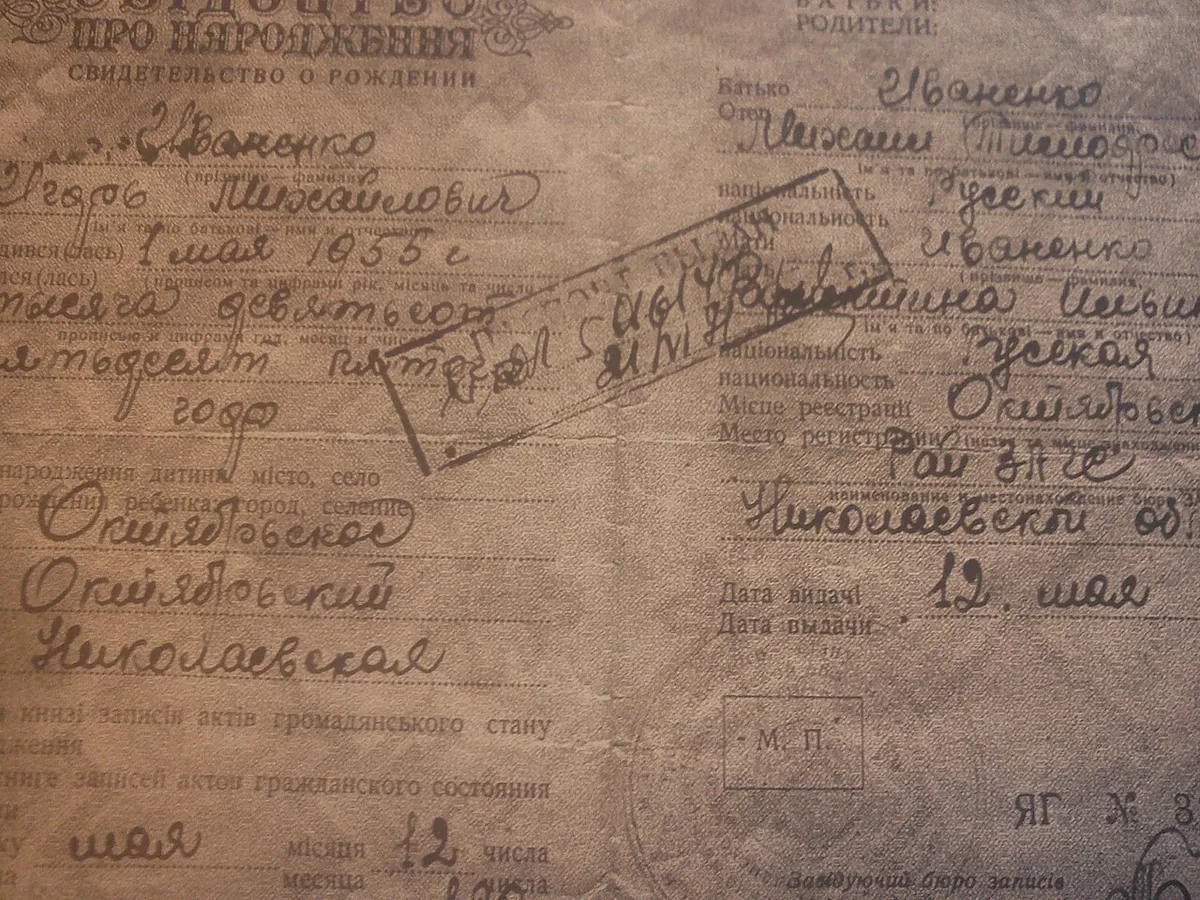 СВІДОЦТВО
ПРО НАРОДЖЕННЯ
СВИДЕТЕЛЬСТВО О РОЖДЕНИИ
Иваненко
(прізвище — фамилия)
Игорь Михайлович
ім'я та по батькові — имя и отчество
дився(лась) 1 мая 1955 г
лся(лась) (прописом та цифрами рік, місяць та число
тысяча девятьсот
прописью и цифрами год, месяц и чис
ятьдесят пятого
года
народження дитини: місто, село
рождения ребенка: город, селение
Октябрьское
Октябрьский
Николаевская
книзі записів актів громадянського стану
дження
книге записей актов гражданского состояния
ку мая місяця 12 числа
месяца числа
БАТЬКИ:
РОДИТЕЛИ:
Батько Иваненко
Отец
прізвище — фамилия
Михаил Тимофее
ім'я та по батькові — имя и отчество)
національність Русский
национальность
Мати Иваненко
(прізвище — фамилия,
Ильи
ім'я та по батькові — имя и отчество)
національність Русская
национальность
Місце реєстрації Октябрьск
Место регистрации (назва та місце знаходження
Рай ЗАГС
наименование и местонахождение бюро
Николаевской об
Дата видачі 12 мая
Дата выдачи
М. П.
ЯГ № 8
Завідуючий бюро записів